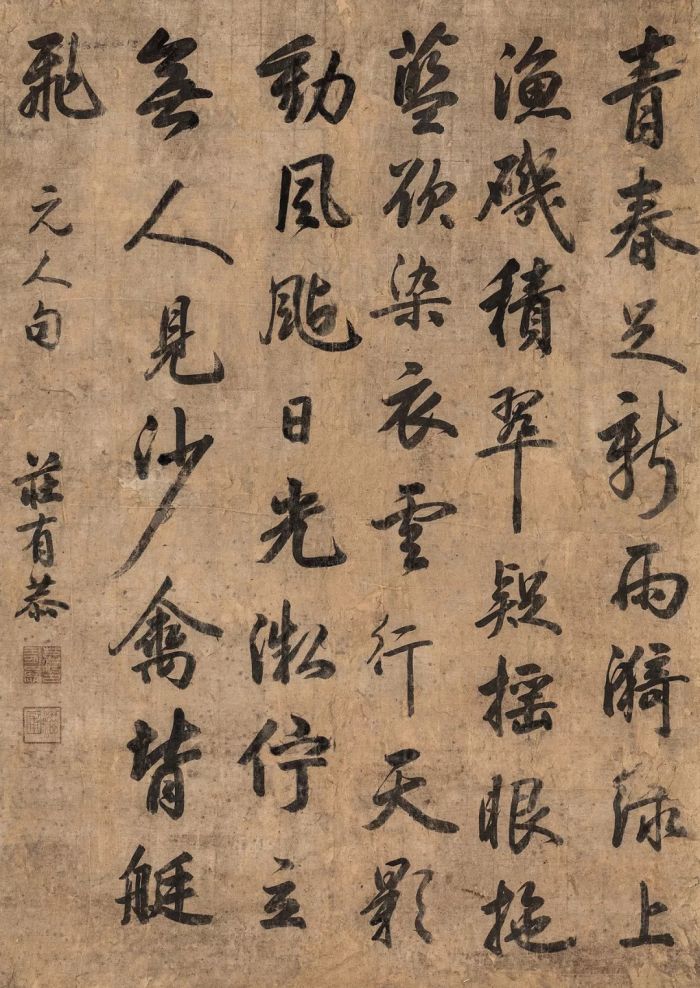 青春足新雨漪綠上
漁磯積翠疑搖眼拖
藍欲染衣雲行天影
動風颭日光微佇立
無人見沙禽背艇
飛
元人句
莊有恭